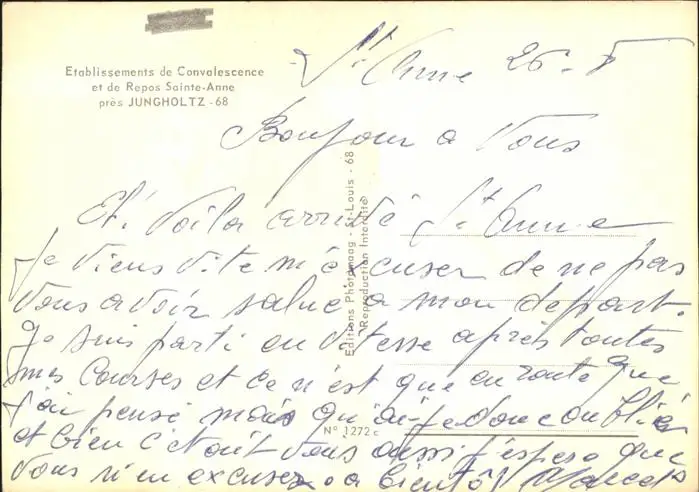 Etablissements de Convalescence
et de Repos Sainte-Anne
près JUNGHOLTZ - 68
St Anne 26-5
Bonjour a Vous
Et Voila arrivé St Anne
Je viens vite m'excuser de ne pas
Vous avoir salué a mon depart.
Je suis parti en vitesse après toutes
mes Courses et ce n'est que en route que
j'ai pensé mais qu'ai-je donc oublié
et bien c'etait vous aussi j'espere que
Vous m'en excusez a bientôt
Editions Photomaag - St-Louis - 68
(Reproduction Interdite)
N° 1272 c